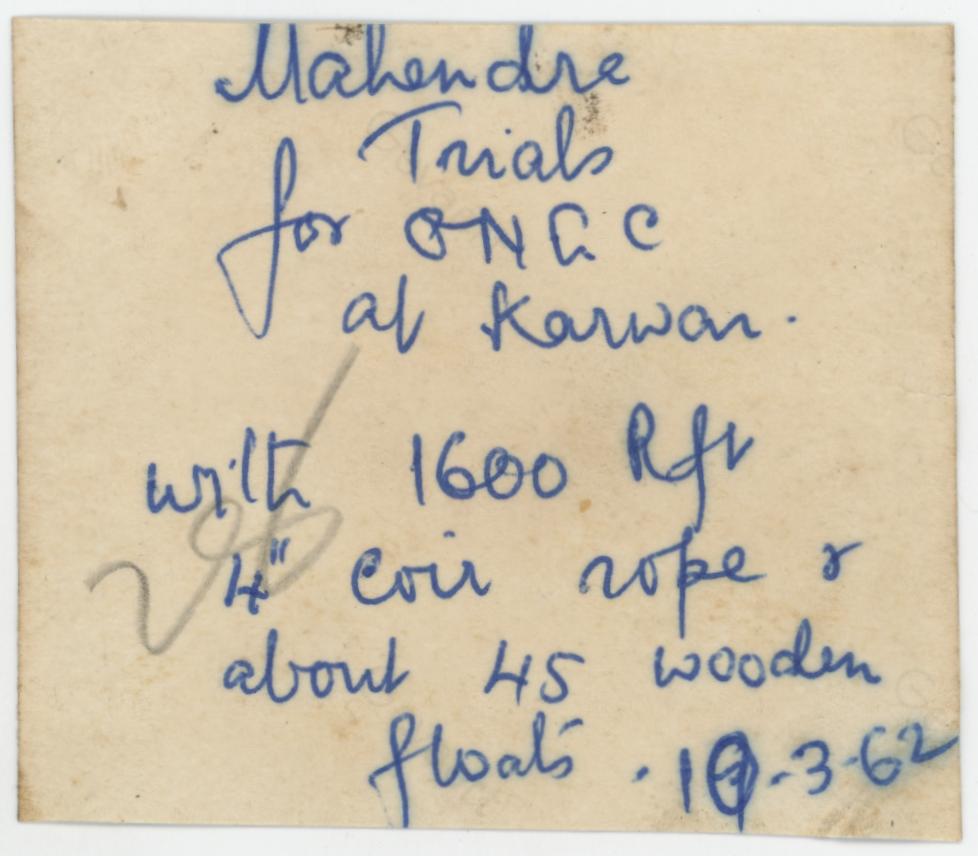 Mahendra
Trials
for ONGC
at Karwar.
with 1600 Rft
4" Coir rope &
about 45 wooden
floats. 19-3-62